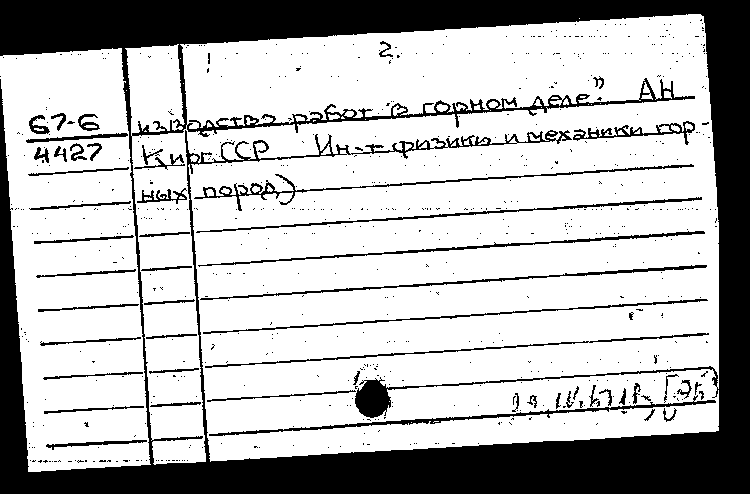 2.
67-6 изводство работ в горном деле". АН
4427 Кирг.ССР Ин-т физики и механики гор-
ных пород)